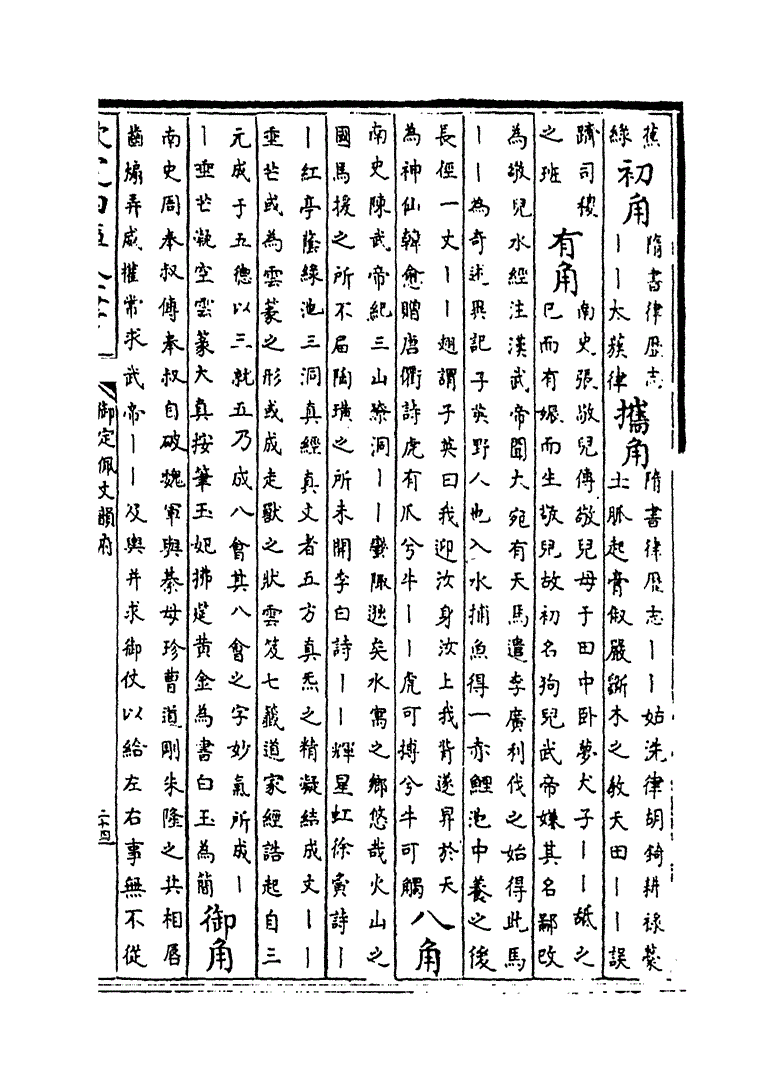 蕉綠
初角 隋書律歷志丨丨太蔟律
攜角 隋書律歷志丨丨姑洗律胡錡耕祿藁
土脈起膏俶嚴斲木之教天田丨丨誤
躋司稷之班
有角 南史張敬兒傳敬兒母于田中卧夢犬子丨丨䑛之
已而有娠而生敬兒故初名狗兒武帝嫌其名鄙改
為敬兒水經注漢武帝聞大宛有天馬遣李廣利伐之始得此馬
丨丨為奇述異記子英野人也入水捕魚得一赤鯉池中養之後
長徑一丈丨丨翅謂子英曰我迎汝身汝上我背遂昇於天
為神仙韓愈贈唐衢詩虎有爪兮牛丨丨虎可搏兮牛可觸
八角
南史陳武帝紀三山獠洞丨丨蠻陬逖矣水寓之鄉悠哉火山之
國馬援之所不屆陶璜之所未開李白詩丨丨輝星虹徐夤詩丨
丨紅亭蔭綠池三洞真經真文者五方真炁之精凝結成文丨丨
垂芒或為雲篆之形或成走獸之狀雲笈七籤道家經誥起自三
元成于五德以三就五乃成八會其八會之字妙氣所成丨
丨垂芒凝空雲篆太真按筆玉妃拂筵黃金為書白玉為簡
御角
南史周奉叔傳奉叔自破魏軍與綦母珍曹道剛朱隆之共相脣
齒煽弄威權常求武帝丨丨及輿并求御仗以給左右事無不從
欽定四庫全書
御定佩文韻府
二十四